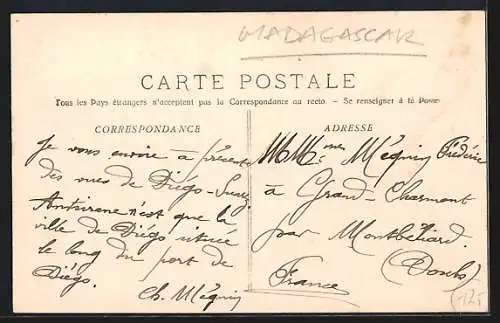 MADAGASCAR
CARTE POSTALE
Tous les Pays étrangers n'acceptent pas la Correspondance au recto. - Se renseigner à la Poste
CORRESPONDANCE
Je vous envoie à présent
des vues de Diégo-Suarez
Antsirene n'est que la
ville de Diégo située
le long du port de
Diégo.
Ch. Méquin
ADRESSE
Méquin Frédéric
à Grand-Charmont
par Montbéliard.
(Doubs)
France